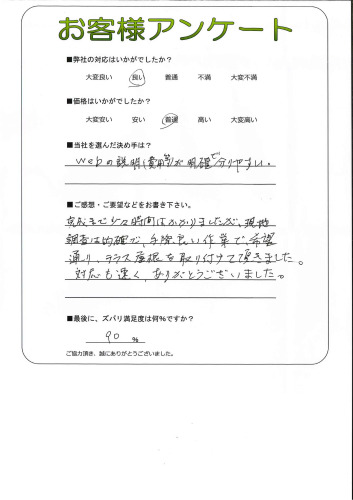 お客様アンケート
■弊社の対応はいかがでしたか？
大変良い 良い 普通 不満 大変不満
■価格はいかがでしたか？
大変安い 安い 普通 高い 大変高い
■当社を選んだ決め手は？
Webの説明(費用等)が明確で分りやすい。
■ご感想・ご要望などをお書き下さい。
完成まで少々時間はかかりましたが、現地
調査は的確で、手際良い作業で、希望
通り、テラス屋根を取り付けて頂きました。
対応も速く、ありがとうございました。
■最後に、ズバリ満足度は何%ですか？
90 %
ご協力頂き、誠にありがとうございました。